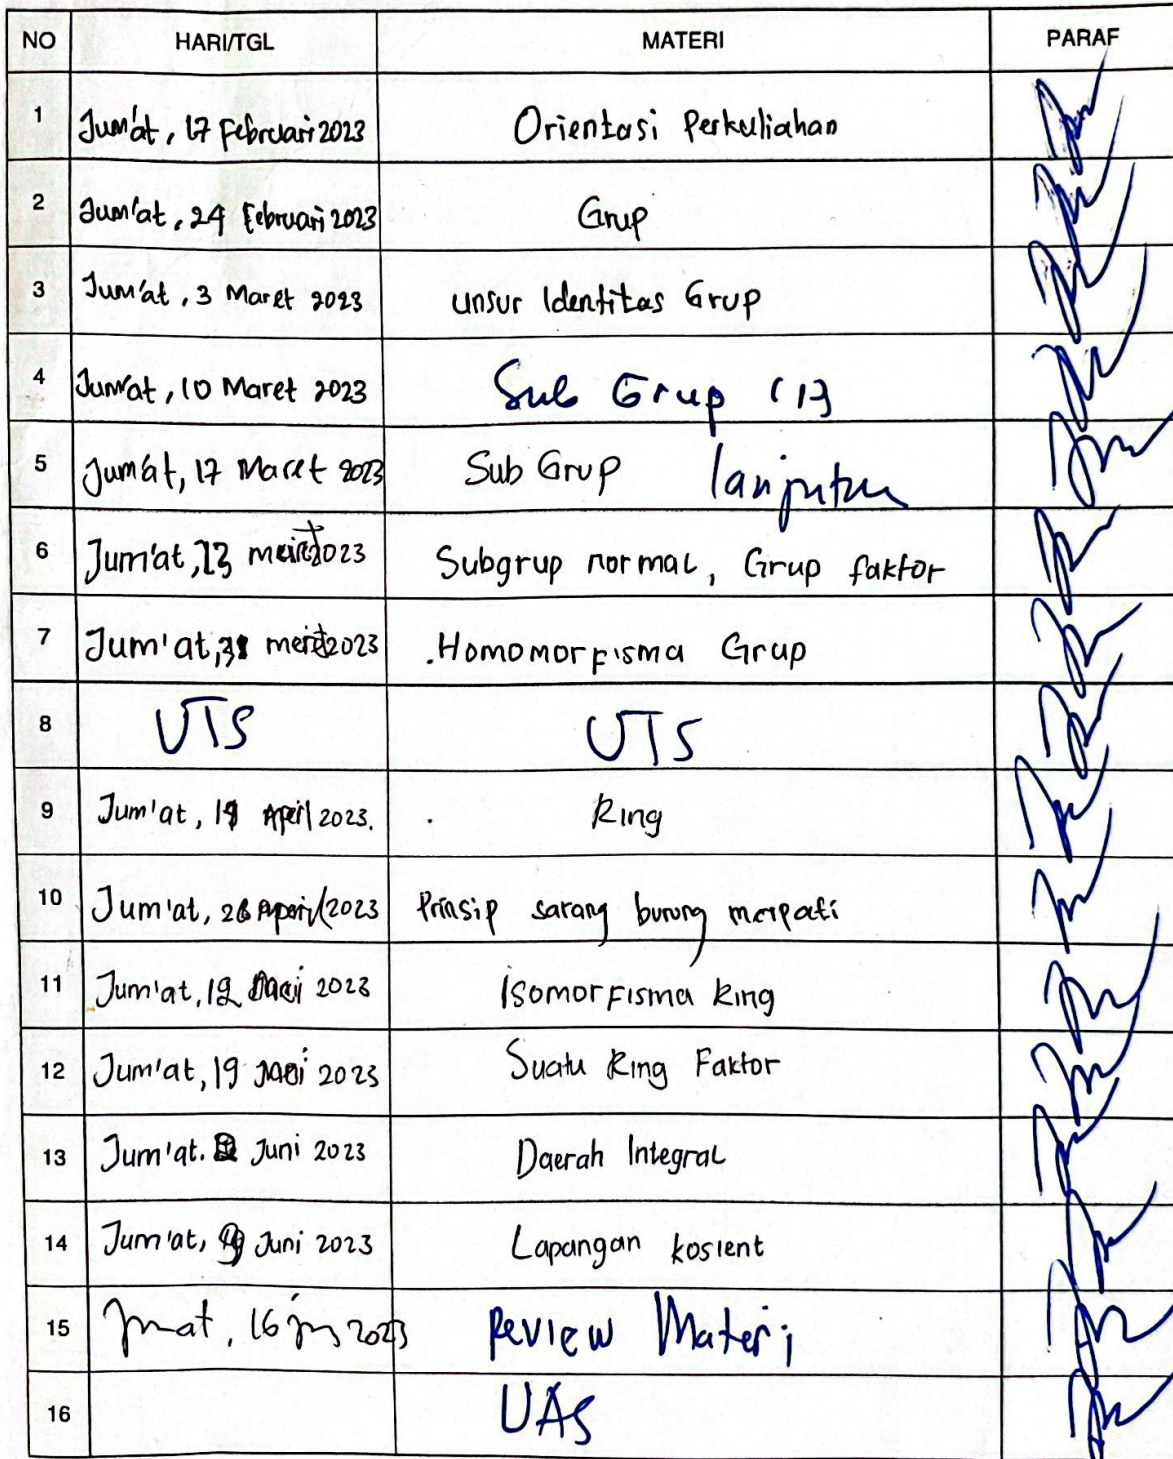 NO HARI/TGL MATERI PARAF
1 Jum'at, 17 Februari 2023 Orientasi Perkuliahan
2 Jum'at, 24 Februari 2023 Grup
3 Jum'at, 3 Maret 2023 unsur Identitas Grup
4 Jum'at, 10 Maret 2023 Sub Grup (1)
5 Jum'at, 17 Maret 2023 Sub Grup lanjutan
6 Jum'at, 2023 Subgrup normal, Grup faktor
7 Jum'at, 31 2023 Homomorfisma Grup
8 UTS UTS
9 Jum'at, April 2023. Ring
10 Jum'at, April 2023 Prinsip sarang burung merpati
11 Jum'at, 12 2023 Isomorfisma Ring
12 Jum'at, 19 2023 Suatu Ring Faktor
13 Jum'at. Juni 2023 Daerah Integral
14 Jum'at, Juni 2023 Lapangan kosient
15 Jumat, 16 2023 Review Materi
16 UAS